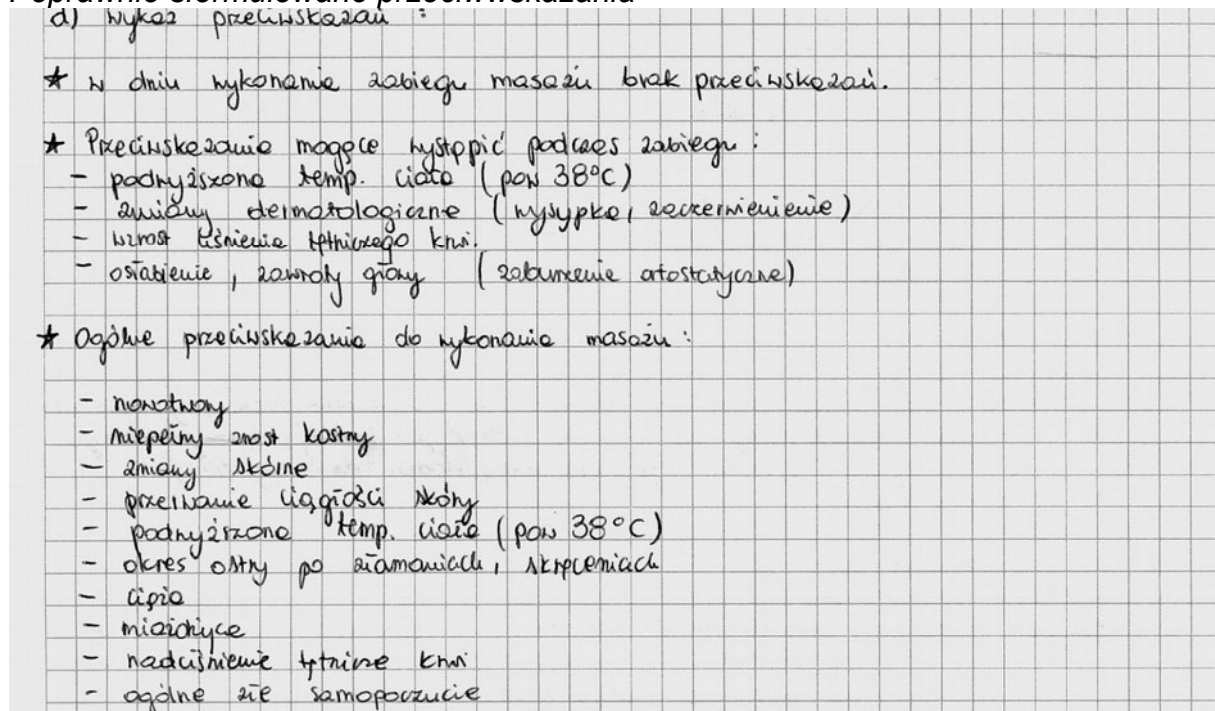 Poprawnie sformułowane przeciwwskazania
d) wykaz przeciwskazań :
★ w dniu wykonania zabiegu masażu brak przeciwskazań.
★ Przeciwskazania mogące wystąpić podczas zabiegu :
- podwyższona temp. ciała (pow 38°C)
- zmiany dermatologiczne (wysypka, zaczerwienienie)
- wzrost ciśnienia tętniczego krwi.
- osłabienie, zawroty głowy (zaburzenie ortostatyczne)
★ Ogólne przeciwskazania do wykonania masażu :
- nowotwory
- niepełny zrost kostny
- zmiany skórne
- przerwanie ciągłości skóry
- podwyższona temp. ciała (pow 38°C)
- okres ostry po złamaniach, skręceniach
- ciąża
- miażdżyca
- nadciśnienie tętnicze krwi
- ogólne złe samopoczucie